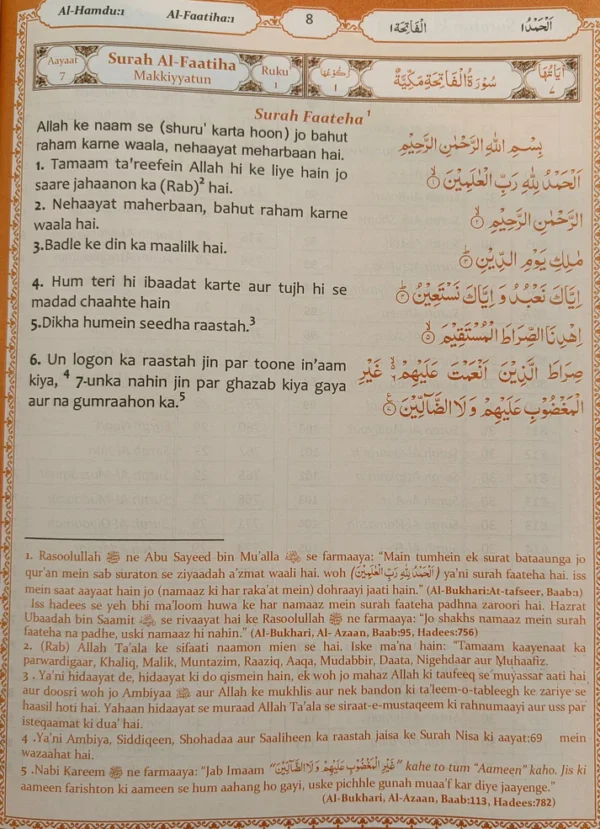 Al-Hamdu:1 Al-Faatiha:1 8 اَلْفَاتِحَة١ اَلْحَمْدُ١
Aayaat 7 Surah Al-Faatiha Makkiyyatun Ruku 1 رُكُوْعُهَا ١ سُوْرَةُ الْفَاتِحَةِ مَكِّيَّةٌ اٰيَاتُهَا ٧
Surah Faateha¹
Allah ke naam se (shuru' karta hoon) jo bahut
raham karne waala, nehaayat meharbaan hai.
بِسْمِ اللّٰهِ الرَّحْمٰنِ الرَّحِيْمِ
1. Tamaam ta'reefein Allah hi ke liye hain jo
saare jahaanon ka (Rab)² hai.
اَلْحَمْدُ لِلّٰهِ رَبِّ الْعٰلَمِيْنَ ١
2. Nehaayat maherbaan, bahut raham karne
waala hai.
الرَّحْمٰنِ الرَّحِيْمِ ٢
3.Badle ke din ka maalilk hai.
مٰلِكِ يَوْمِ الدِّيْنِ ٣
4. Hum teri hi ibaadat karte aur tujh hi se
madad chaahte hain
اِيَّاكَ نَعْبُدُ وَ اِيَّاكَ نَسْتَعِيْنُ ٤
5.Dikha humein seedha raastah.³
اِهْدِنَا الصِّرَاطَ الْمُسْتَقِيْمَ ٥
6. Un logon ka raastah jin par toone in'aam
kiya, ⁴ 7-unka nahin jin par ghazab kiya gaya
aur na gumraahon ka.⁵
صِرَاطَ الَّذِيْنَ اَنْعَمْتَ عَلَيْهِمْ ٦ غَيْرِ
الْمَغْضُوْبِ عَلَيْهِمْ وَلَا الضَّآلِّيْنَ ٧
1. Rasoolullah ﷺ ne Abu Sayeed bin Mu'alla se farmaaya: "Main tumhein ek surat bataaunga jo
qur'an mein sab suraton se ziyaadah a'zmat waali hai. woh (اَلْحَمْدُ لِلّٰهِ رَبِّ الْعٰلَمِيْنَ) ya'ni surah faateha hai. iss
mein saat aayaat hain jo (namaaz ki har raka'at mein) dohraayi jaati hain." (Al-Bukhari:At-tafseer, Baab:1)
Iss hadees se yeh bhi ma'loom huwa ke har namaaz mein surah faateha padhna zaroori hai. Hazrat
Ubaadah bin Saamit se rivaayat hai ke Rasoolullah ﷺ ne farmaaya: "Jo shakhs namaaz mein surah
faateha na padhe, uski namaaz hi nahin." (Al-Bukhari, Al- Azaan, Baab:95, Hadees:756)
2. (Rab) Allah Ta'ala ke sifaati naamon mien se hai. Iske ma'na hain: "Tamaam kaayenaat ka
parwardigaar, Khaliq, Malik, Muntazim, Raaziq, Aaqa, Mudabbir, Daata, Nigehdaar aur Muhaafiz.
3 . Ya'ni hidaayat de, hidaayat ki do qismein hain, ek woh jo mahaz Allah ki taufeeq se'muyassar aati hai
aur doosri woh jo Ambiyaa aur Allah ke mukhlis aur nek bandon ki ta'leem-o-tableegh ke zariye se
haasil hoti hai. Yahaan hidaayat se muraad Allah Ta'ala se siraat-e-mustaqeem ki rahnumaayi aur uss par
isteqaamat ki dua' hai.
4 .Ya'ni Ambiya, Siddiqeen, Shohadaa aur Saaliheen ka raastah jaisa ke Surah Nisa ki aayat:69 mein
wazaahat hai.
5 .Nabi Kareem ﷺ ne farmaaye: "Jab Imaam "غَيْرِ الْمَغْضُوْبِ عَلَيْهِمْ وَلَا الضَّآلِّيْنَ" kahe to tum "Aameen" kaho. Jis ki
aameen farishton ki aameen se hum aahang ho gayi, uske pichhle gunah muaa'f kar diye jaayenge."
(Al-Bukhari, Al-Azaan, Baab:113, Hadees:782)